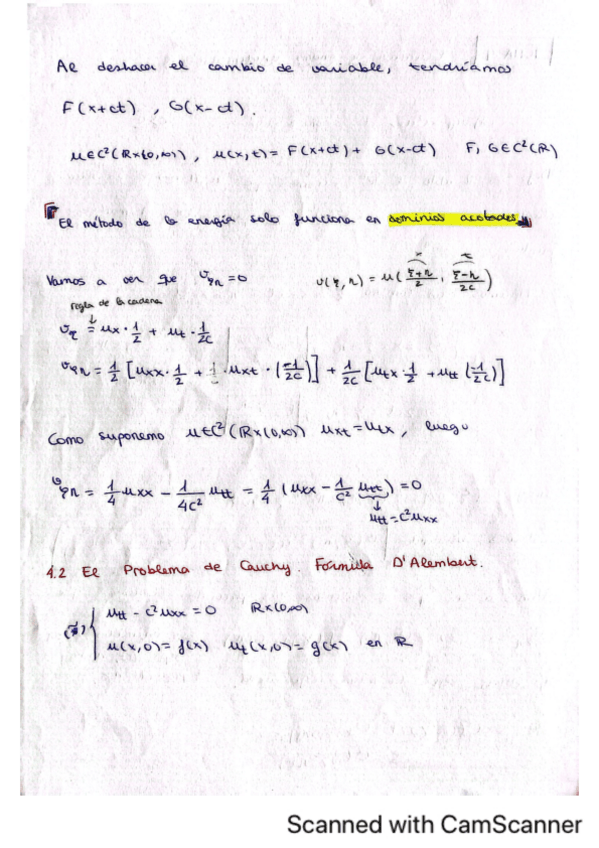 Al deshacer el cambio de variable, tendríamos
F(x+ct) , G(x-ct).
u∈C²(R×(0,∞)) , u(x,t) = F(x+ct) + G(x-ct) F, G∈C²(R)
El método de la energía solo funciona en dominios acotados
Vamos a ver que v_ξη = 0 v(ξ,η) = u( (ξ+η)/2 , (ξ-η)/2c )
x t
regla de la cadena
v_ξ = ux · 1/2 + ut · 1/2c
v_ξη = 1/2 [uxx · 1/2 + uxt · (-1/2c)] + 1/2c [utx · 1/2 + utt (-1/2c)]
Como suponemo u∈C²(R×(0,∞)) uxt = utx, luego
v_ξη = 1/4 uxx - 1/4c² utt = 1/4 (uxx - 1/c² utt) = 0
utt = c²uxx
4.2 El Problema de Cauchy. Fórmula D'Alembert.
utt - c²uxx = 0 R×(0,∞)
u(x,0) = f(x) ut(x,0) = g(x) en R
Scanned with CamScanner